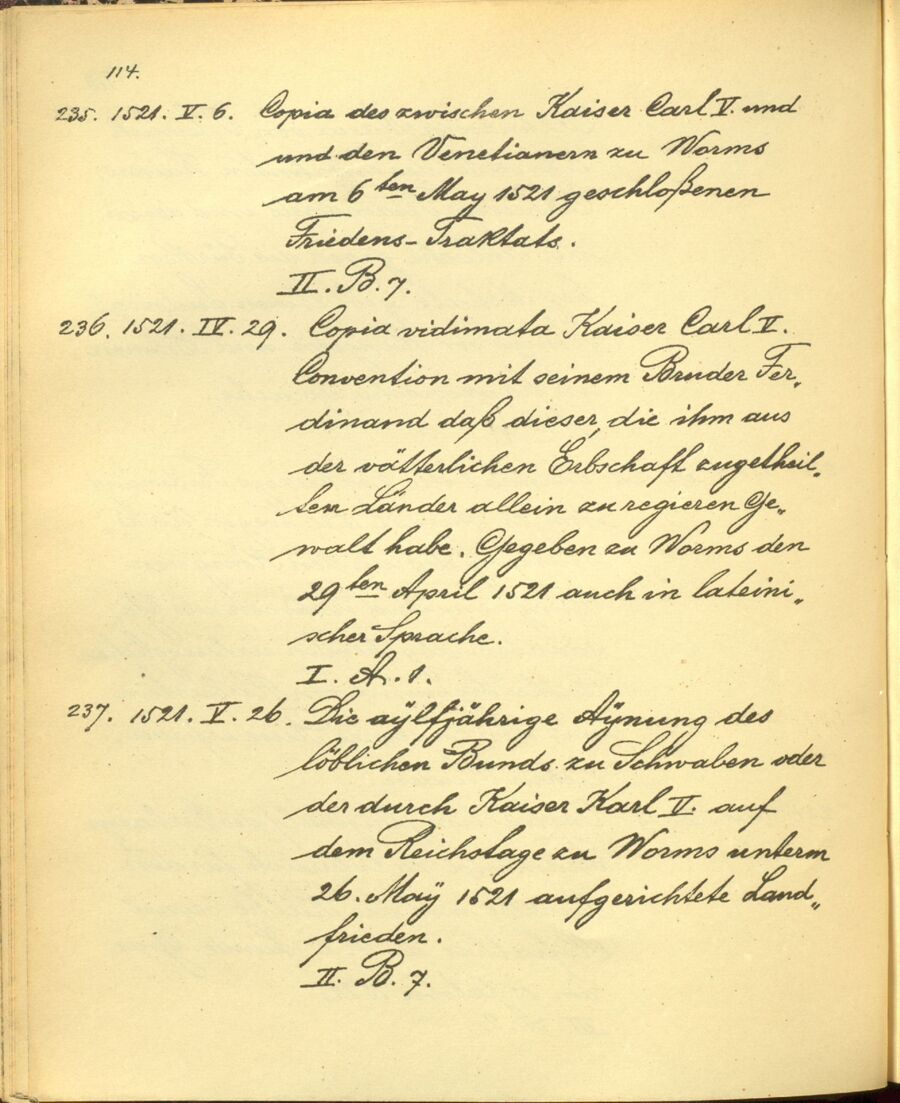 114.
235. 1521. V. 6. Copia des zwischen Kaiser Carl V. und
und den Venetianern zu Worms
am 6ten May 1521 geschloßenen
Friedens-Traktats.
II. B. 7.
236. 1521. IV. 29. Copia vidimata Kaiser Carl V.
Convention mit seinem Bruder Fer„
dinand daß dieser, die ihm aus
der vätterlichen Erbschaft zugetheil„
ten Länder allein zu regieren Ge„
walt habe. Gegeben zu Worms den
29ten April 1521 auch in lateini„
scher Sprache.
I. A. 1.
237. 1521. V. 26. Die aÿlfjährige Aÿnung des
löblichen Bunds zu Schwaben oder
der durch Kaiser Karl V. auf
dem Reichstage zu Worms unterm
26. Maÿ 1521 aufgerichtete Land„
frieden.
II. B. 7.